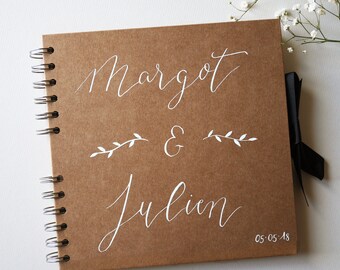 Margot
&
Julien
05.05.18